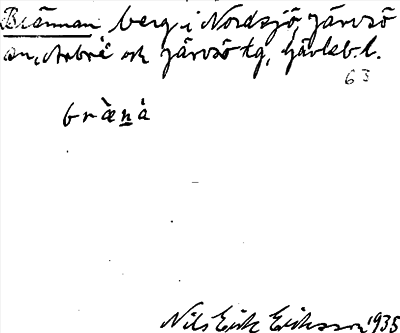 Brännan berg i Nordsjö, Järvsö
sn, Arbrå och Järvsö tg, Gävleb. l.
63
bræ̀nȧ
Nils Erik Eriksson 1935